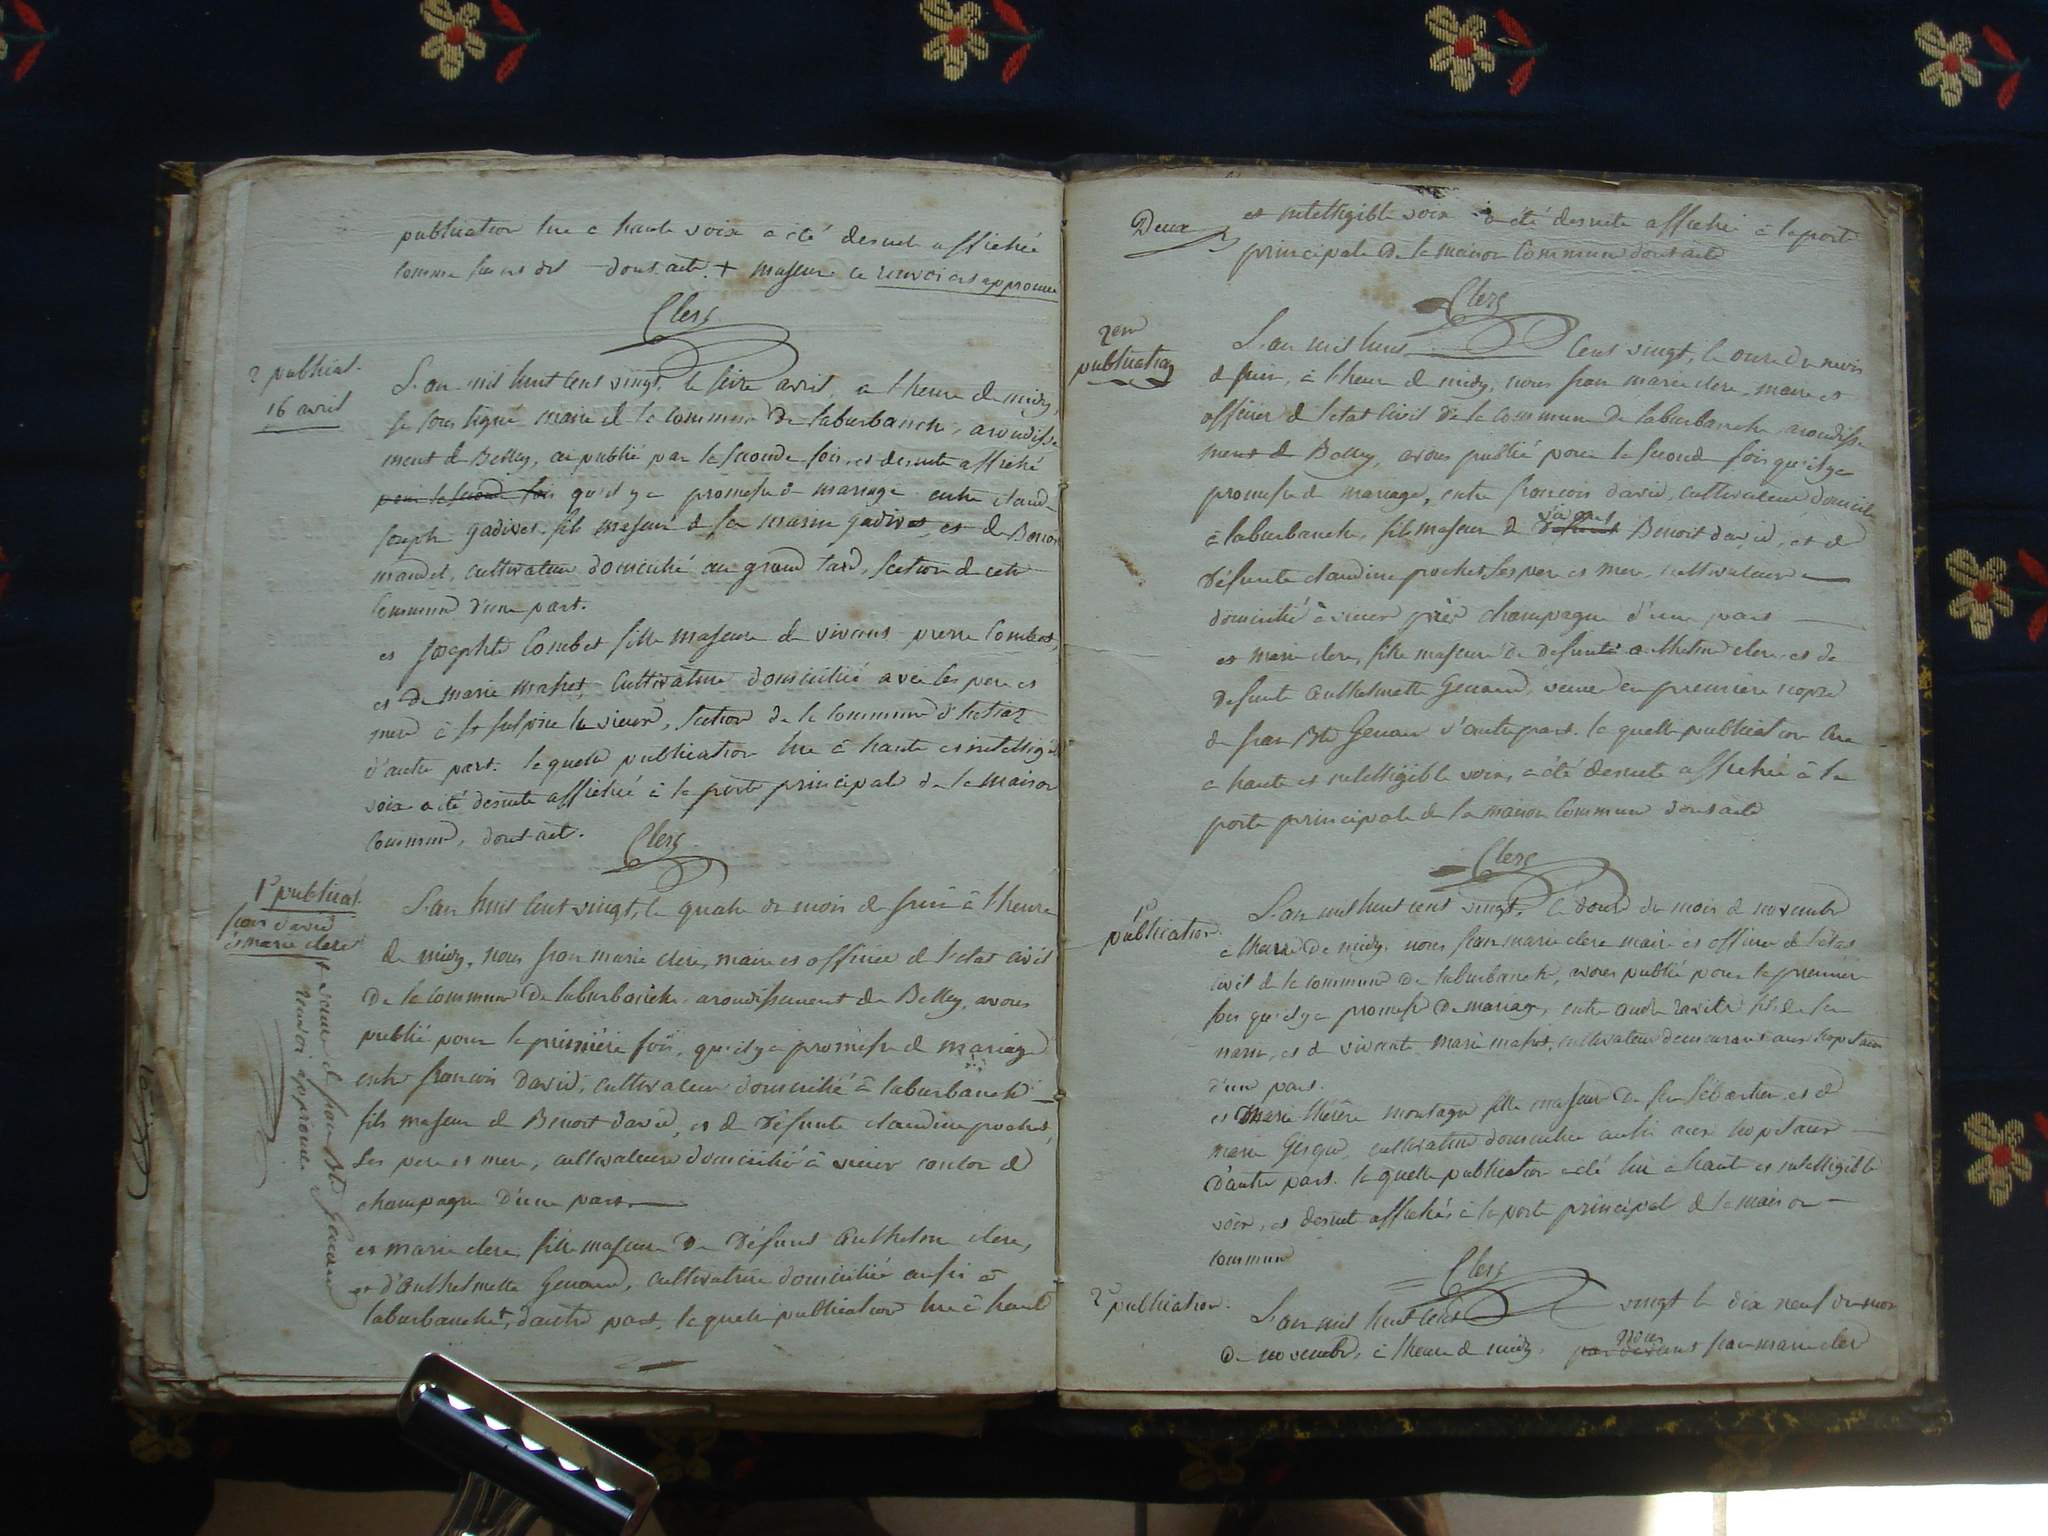 publication lue a haute voix a été desuite affichée
comme sus est dit dont acte. + majeure ce renvoi est approuvé
Clerc
2 publicat.
16 avril
L'an mil huit cent vingt, le seize avril, a l'heure de midy,
je sous signé maire de la commune de laburbanche, arondisse
ment de Belley, ai publié par la seconde fois, et desuite affiché
pour la seconde fois qu'il y a promesse de mariage entre claude
joseph gadivet fils majeur de feu marin gadivet, et de
mandet, cultivateur domicilié au grand tard, section de cette
commune d'une part.
et josephte Combet fille majeure de vivans pierre Combet,
et de marie mahet, Cultivatrice domiciliée avec les pere et
mere à st sulpice le vieux, section de la commune d'hostiaz
d'autre part. la quelle publication lue à haute et intelligible
voix a été desuite affichée à la porte principale de la maison
commune, dont acte.
Clerc
1e publicat.
fcois david
et marie clerc
L'an huit cent vingt, le quatre du mois de juin à l'heure
de midy, nous jean marie clerc, maire et officier de l'etat civil
De la commune De laburbanche arondissement de Belley, avons
publié pour la première fois, qu'il y a promesse de mariage
entre francois David, cultivateur domicilié à laburbanche
fils majeur de Benoit david, et de Défunte claudine pochet,
ses pere et mere, cultivateur domicilié à vieux canton de
champagne D'une part.
et marie clerc fille majeure De Défunt Anthelme clerc,
et d'Anthelmette Genand, cultivatrice domiciliée aussi à
laburbanche +, d'autre part, la quelle publication lue à haute
+ veuve de jean Bte Genand
renvoi approuvé
Deux
et intelligible voix a été desuite affichée à la porte
principale De la maison Commune dont acte
Clerc
2eme
publication
L'an mil huit Cent vingt, le onze du mois
de juin, à l'heure de midy, nous jean marie clerc, maire et
officier de l'etat Civil de la commune De laburbanche arondisse
ment de Belley, avons publié pour la seconde fois qu'il y a
promesse de mariage, entre francois david, cultivateur domicilié
à laburbanche, fils majeur de défunt vivant Benoit david, et de
Défunte claudine pochet, ses pere et mere, cultivateur
domicilié à vieux près champagne d'une part
et marie clerc, fille majeure De Defunt anthelme clerc, et de
Defunte Anthelmette Genand, veuve en premiere nopce
de jean Bte Genand d'autre part. la quelle publication lue
a haute et intelligible voix, a été desuite affichée à la
porte principale de la maison Commune dont acte
Clerc
1e
publication.
L'an mil huit cent vingt, le douze du mois de novembre
à l'heure De midy nous jean marie clerc maire et officier de l'etat
civil de la commune De laburbanche, avons publié pour la premiere
fois qu'il y a promesse De mariage, entre fils de feu
marin, et de vivante marie mahet, cultivateur demeurant aux hopitaux
d'une part.
et Marie thérèse montagne fille majeure De feu Sébastien, et de
marie cultivatrice domiciliée aussi aux hopitaux
d'autre part. la quelle publication a été lue a haute et intelligible
voix, et desuite affichée à la porte principale de la maison
commune
Clerc
2e publication.
L'an mil huit cent vingt le dix neuf du mois
De novembre, à l'heure de midy, par devant nous jean marie clerc